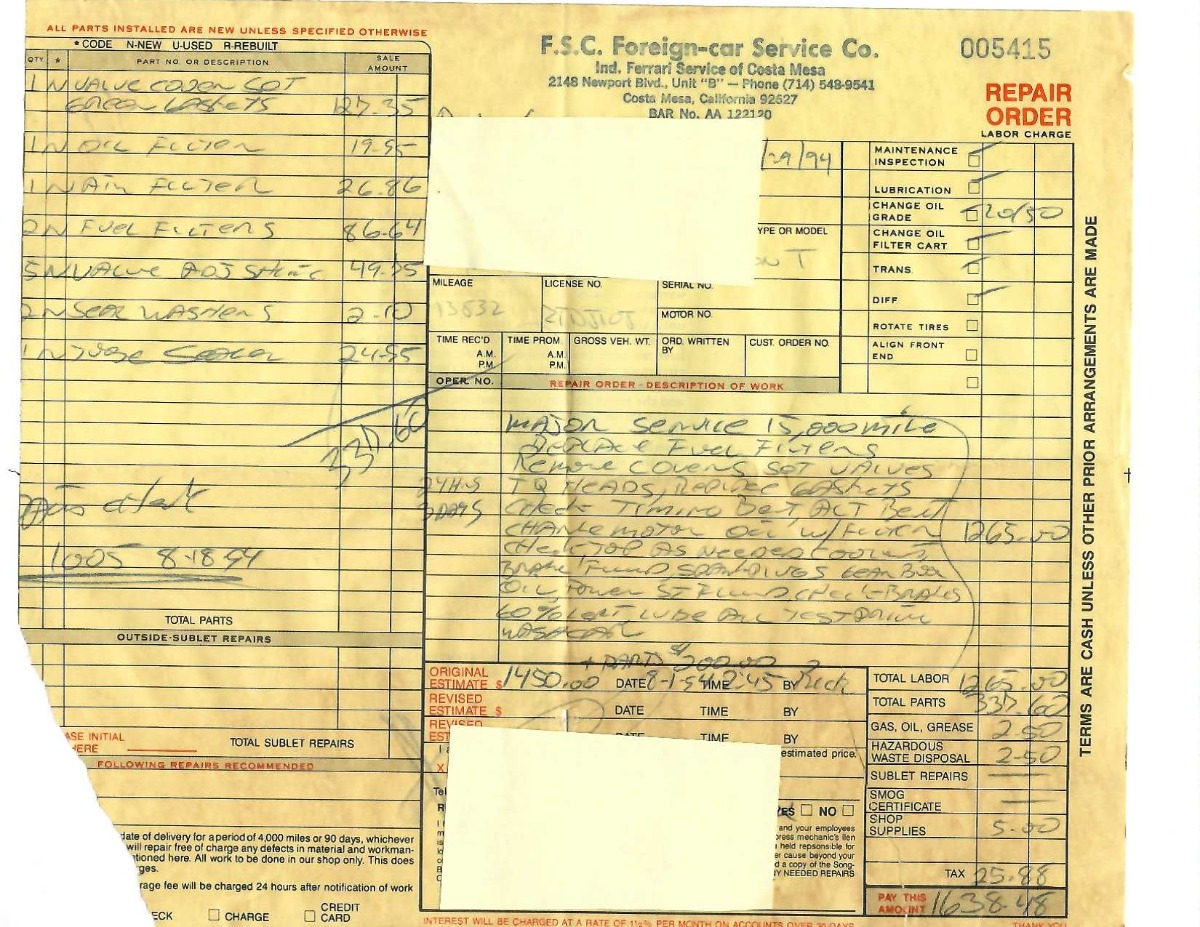 ALL PARTS INSTALLED ARE NEW UNLESS SPECIFIED OTHERWISE
* CODE N-NEW U-USED R-REBUILT
QTY * PART NO. OR DESCRIPTION SALE AMOUNT
1 N VALVE COVER SET
GASKETS 127.35
1 N OIL FILTER 19.95
1 N AIR FILTER 26.86
2 N FUEL FILTERS 86.64
5 N VALVE ADJ 49.75
2 N SEAR WASHERS 2.10
1 N 24.95
337.60
1005 8-18-94
TOTAL PARTS
OUTSIDE-SUBLET REPAIRS
ASE INITIAL
HERE TOTAL SUBLET REPAIRS
FOLLOWING REPAIRS RECOMMENDED
date of delivery for a period of 4,000 miles or 90 days, whichever
will repair free of charge any defects in material and workman-
tioned here. All work to be done in our shop only. This does
ges.
rage fee will be charged 24 hours after notification of work
ECK CHARGE CREDIT CARD
F.S.C. Foreign-car Service Co.
Ind. Ferrari Service of Costa Mesa
2148 Newport Blvd., Unit "B" — Phone (714) 548-9541
Costa Mesa, California 92627
BAR No. AA 122120
005415
REPAIR
ORDER
LABOR CHARGE
/29/94
YPE OR MODEL
MAINTENANCE INSPECTION
LUBRICATION
CHANGE OIL GRADE 20/50
CHANGE OIL FILTER CART.
TRANS.
DIFF.
ROTATE TIRES
ALIGN FRONT END
MILEAGE LICENSE NO. SERIAL NO.
13832
MOTOR NO.
TIME REC'D TIME PROM. GROSS VEH. WT. ORD. WRITTEN BY CUST. ORDER NO.
A.M. A.M.
P.M. P.M.
OPER. NO. REPAIR ORDER - DESCRIPTION OF WORK
MAJOR SERVICE 15,000 MILE
REPLACE FUEL FILTERS
REMOVE COVERS SET VALVES
TQ HEADS, REPLACE GASKETS
CHECK TIMING BELT, ALT BELT
CHANGE MOTOR OIL W/ FILTER 1265.00
CHECK TOP AS NEEDED
BRAKE FLUID GEAR BOX
OIL POWER ST FLUID CHECK BRAKES
60% LEFT LUBE ALL TEST DRIVE
WASH CAR
+ PARTS $200.00
ORIGINAL ESTIMATE $ 1450.00 DATE 8-1-94 TIME 2:45 BY
REVISED ESTIMATE $ DATE TIME BY
REVISED EST DATE TIME BY
estimated price.
YES NO
and your employees
press mechanic's lien
held repsonsible for
er cause beyond your
d a copy of the Song-
Y NEEDED REPAIRS
TOTAL LABOR 1265.00
TOTAL PARTS 337.60
GAS, OIL, GREASE 2.50
HAZARDOUS WASTE DISPOSAL 2.50
SUBLET REPAIRS —
SMOG CERTIFICATE —
SHOP SUPPLIES 5.00
TAX 25.88
PAY THIS AMOUNT 1638.48
INTEREST WILL BE CHARGED AT A RATE OF 1½% PER MONTH ON ACCOUNTS OVER 30 DAYS
THANK YOU
TERMS ARE CASH UNLESS OTHER PRIOR ARRANGEMENTS ARE MADE